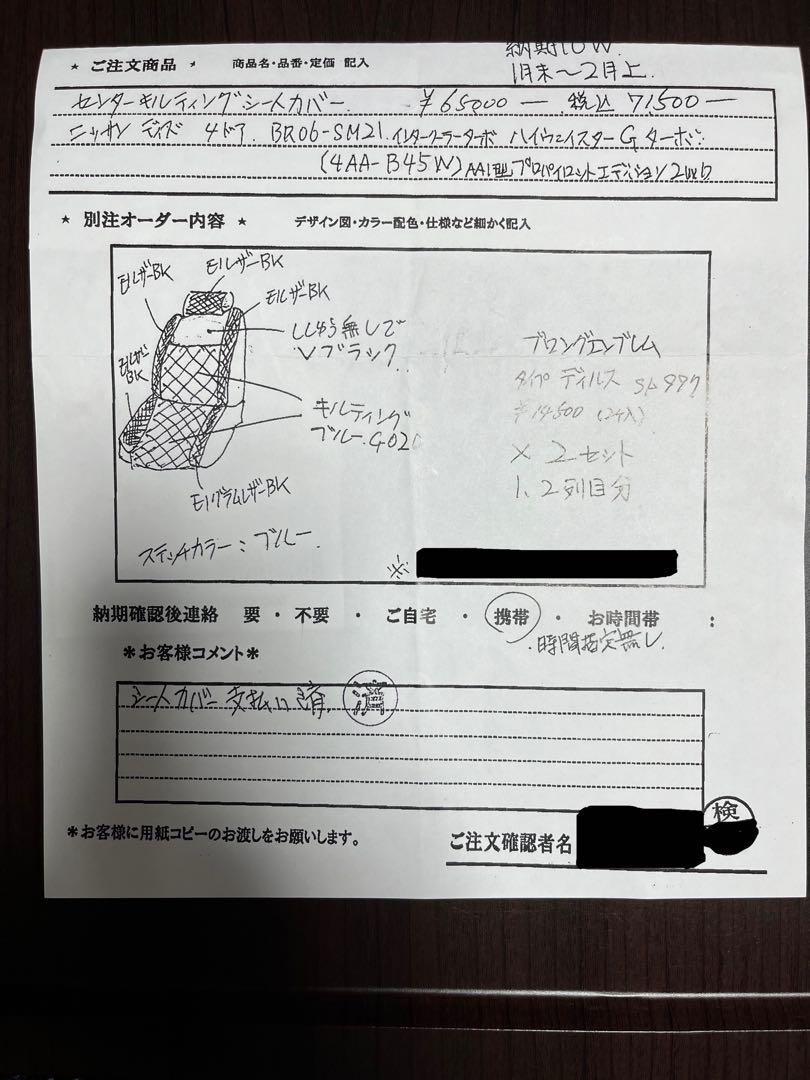 納期10W.
1月末～2月上.
★ ご注文商品 ★ 商品名・品番・定価 記入
センターキルティングシートカバー. ¥65000ー 税込 71,500ー
ニッサン デイズ 4ドア. BR06-SM21. インタークーラーターボ ハイウェイスターGターボ
(4AA-B45W) AA1型 プロパイロットエディション 2WD
★ 別注オーダー内容 ★ デザイン図・カラー配色・仕様など細かく記入
モノレザーBK
モノレザーBK
モノレザーBK
ししゅう無しで
Vブラック.
モノレザー
BK
キルティング
ブルー.G020
モノグラムレザーBK
ステッチカラー：ブルー.
ブロングエンブレム
タイプ ディルス
¥14500 (2ケ入)
× 2セット
1、2列目分
※
納期確認後連絡 要 ・ 不要 ・ ご自宅 ・ 携帯 ・ お時間帯 ：
・時間指定無し
＊お客様コメント＊
シートカバー 支払い済. 済
＊お客様に用紙コピーのお渡しをお願いします。
ご注文確認者名
検